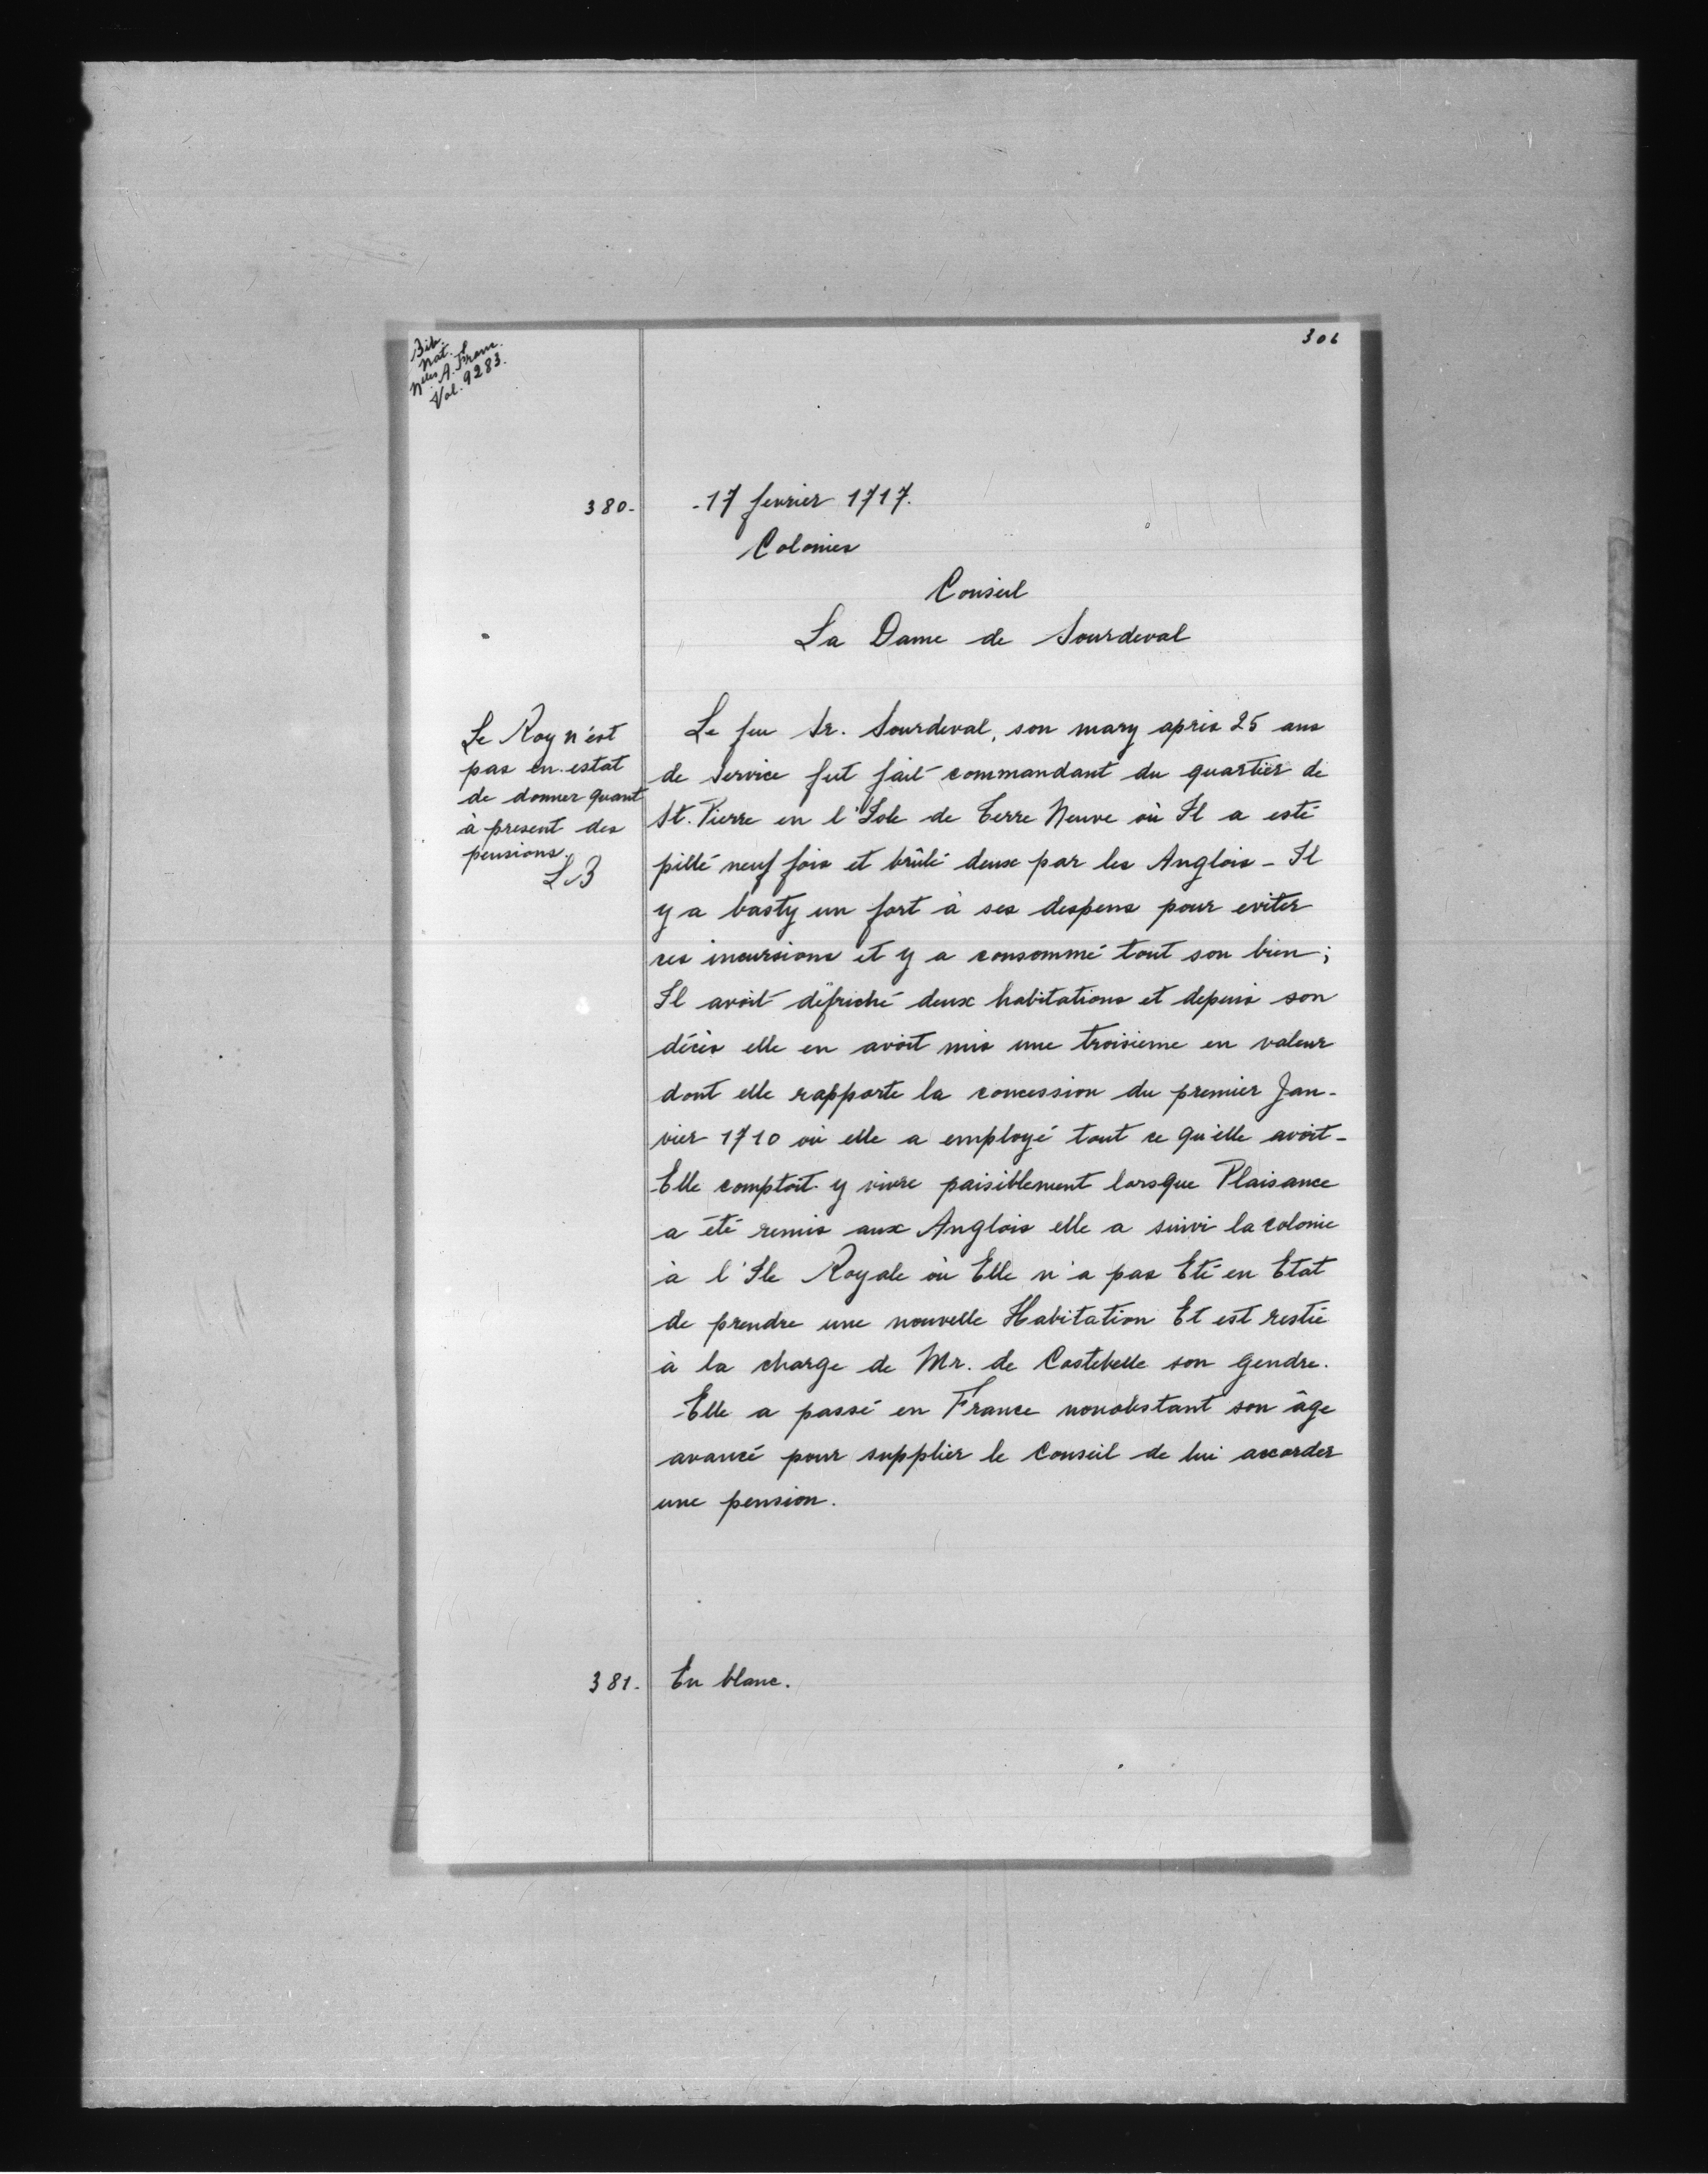 Bib.
Nat.
Nlles A. Franc.
Vol. 9283.
306
380.
- 17 fevrier 1717.
Colonies
Conseil
La Dame de Sourdeval
Le Roy n'est
pas en estat
de donner quant
à present des
pensions.
LB
Le feu Sr. Sourdeval, son mary après 25 ans
de service fut fait commandant du quartier de
St. Pierre en l'Isle de Terre Neuve où Il a esté
pillé neuf fois et brûlé deux par les Anglois - Il
y a basty un fort à ses despens pour eviter
ces incursions et y a consommé tout son bien;
Il avoit défriché deux habitations et depuis son
décès elle en avoit mis une troisieme en valeur
dont elle rapporte la concession du premier Jan-
vier 1710 où elle a employé tout ce qu'elle avoit -
Elle comptoit y vivre paisiblement lorsque Plaisance
a été remis aux Anglois elle a suivi la colonie
à l'Ile Royale où Elle n'a pas Eté en Etat
de prendre une nouvelle Habitation Et est restée
à la charge de Mr. de Costebelle son gendre.
Elle a passé en France nonobstant son âge
avancé pour supplier le Conseil de lui accorder
une pension.
381.
En blanc.